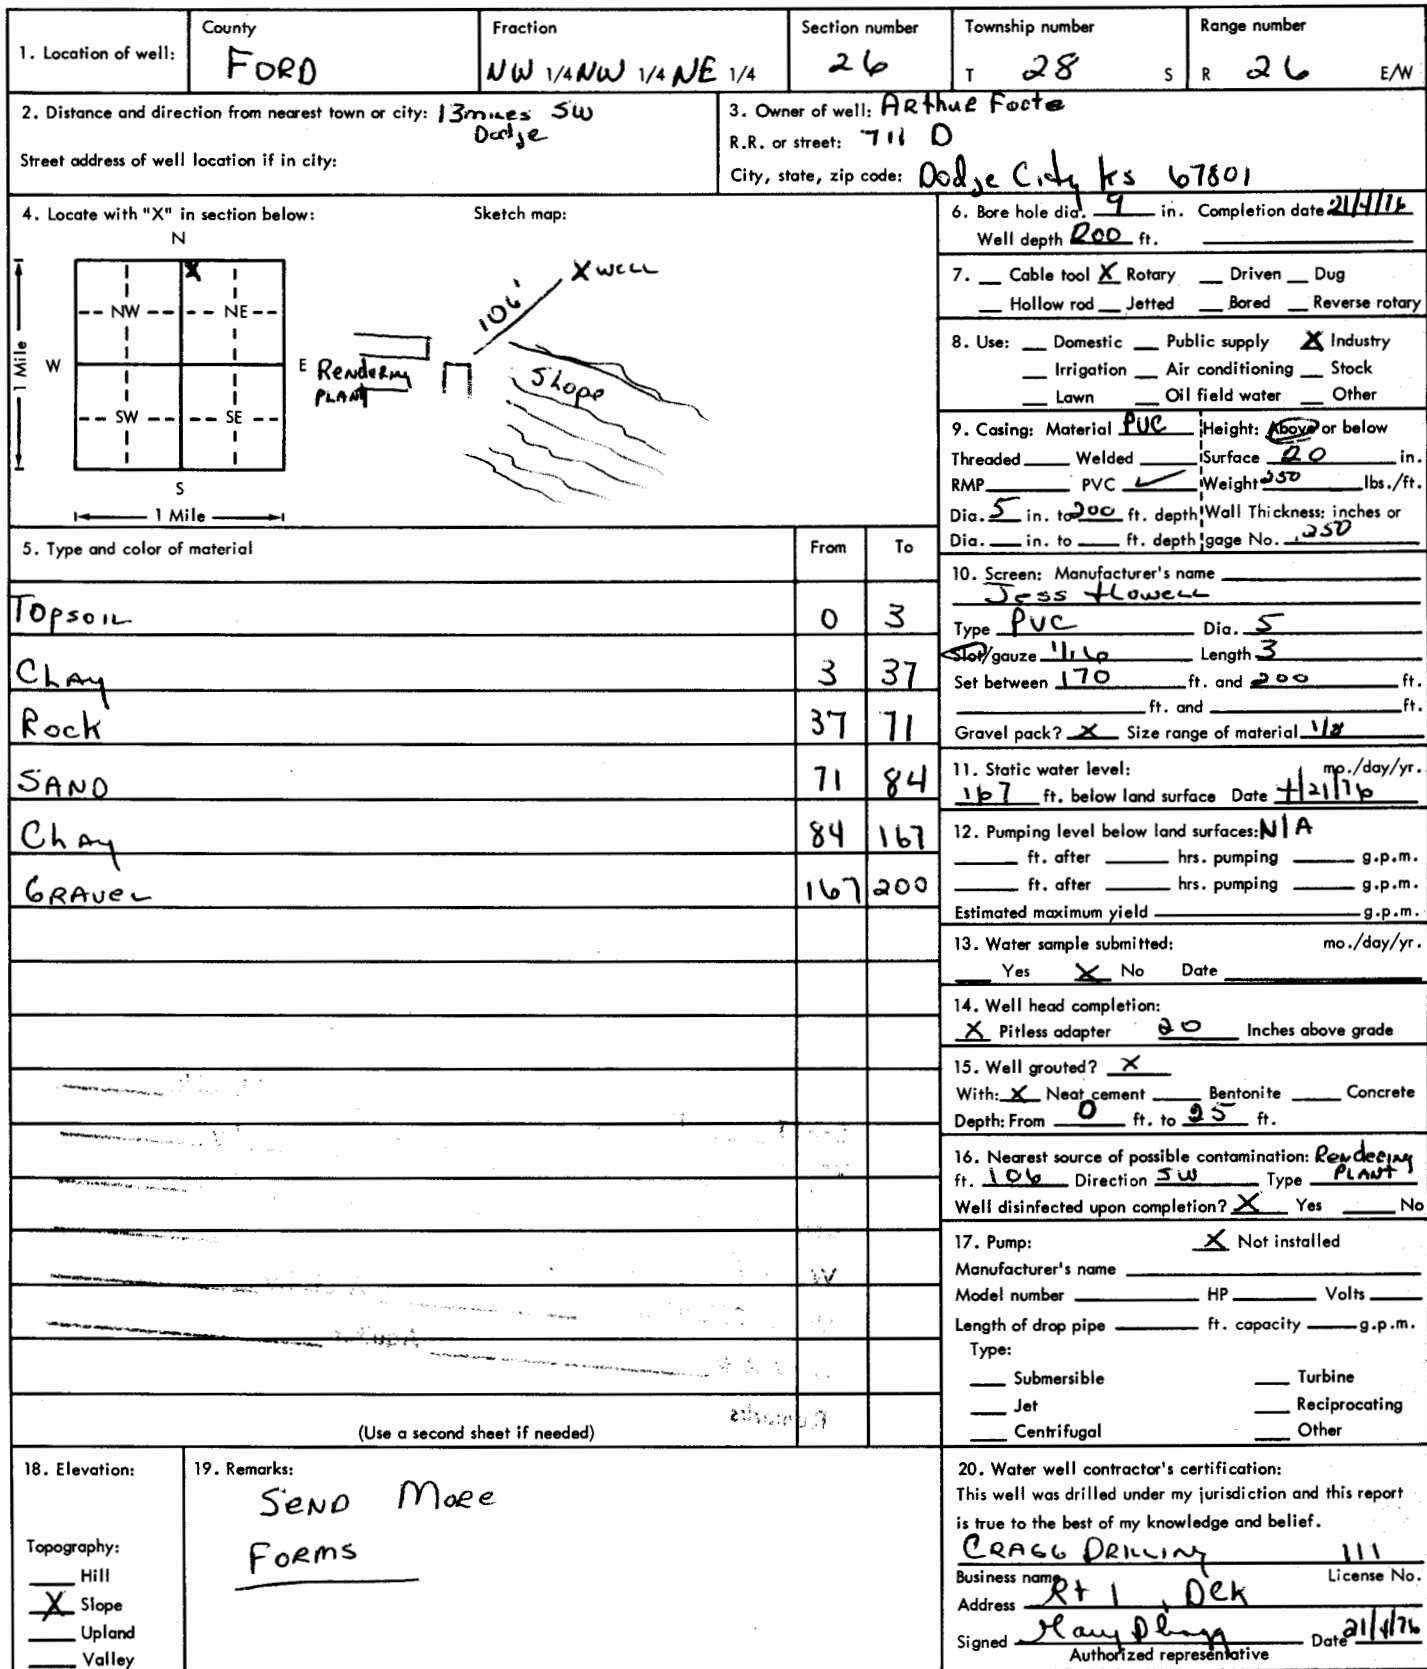 1. Location of well:
County
FORD
Fraction
NW 1/4 NW 1/4 NE 1/4
Section number
26
Township number
T 28 S
Range number
R 26 E/W
2. Distance and direction from nearest town or city: 13 miles SW
Dodge
Street address of well location if in city:
3. Owner of well: Arthur Foote
R.R. or street: 711 D
City, state, zip code: Dodge City Ks 67801
4. Locate with "X" in section below:
Sketch map:
N
X
NW
NE
W
E
SW
SE
S
1 Mile
1 Mile
X WELL
106'
Rendering
PLANT
Slope
5. Type and color of material From To
Topsoil 0 3
Clay 3 37
Rock 37 71
SAND 71 84
Clay 84 167
GRAVEL 167 200
(Use a second sheet if needed)
6. Bore hole dia. 9 in. Completion date 21/4/76
Well depth 200 ft.
7. Cable tool X Rotary Driven Dug
Hollow rod Jetted Bored Reverse rotary
8. Use: Domestic Public supply X Industry
Irrigation Air conditioning Stock
Lawn Oil field water Other
9. Casing: Material PVC Height: Above or below
Threaded Welded Surface 20 in.
RMP PVC ✓ Weight 250 lbs./ft.
Dia. 5 in. to 200 ft. depth Wall Thickness: inches or
Dia. in. to ft. depth gage No. .250
10. Screen: Manufacturer's name
Jess Howell
Type PVC Dia. 5
Slot/gauze 1/16 Length 3
Set between 170 ft. and 200 ft.
ft. and ft.
Gravel pack? X Size range of material 1/8
11. Static water level: mo./day/yr.
167 ft. below land surface Date 4/21/76
12. Pumping level below land surfaces: N/A
ft. after hrs. pumping g.p.m.
ft. after hrs. pumping g.p.m.
Estimated maximum yield g.p.m.
13. Water sample submitted: mo./day/yr.
Yes X No Date
14. Well head completion:
X Pitless adapter 20 Inches above grade
15. Well grouted? X
With: X Neat cement Bentonite Concrete
Depth: From 0 ft. to 25 ft.
16. Nearest source of possible contamination: Rendering
ft. 106 Direction SW Type PLANT
Well disinfected upon completion? X Yes No
17. Pump: X Not installed
Manufacturer's name
Model number HP Volts
Length of drop pipe ft. capacity g.p.m.
Type:
Submersible Turbine
Jet Reciprocating
Centrifugal Other
18. Elevation:
Topography:
Hill
X Slope
Upland
Valley
19. Remarks:
SEND MORE
FORMS
20. Water well contractor's certification:
This well was drilled under my jurisdiction and this report
is true to the best of my knowledge and belief.
CRAGG DRILLING 111
Business name License No.
Address Rt 1, DCK
Signed Date 21/4/76
Authorized representative